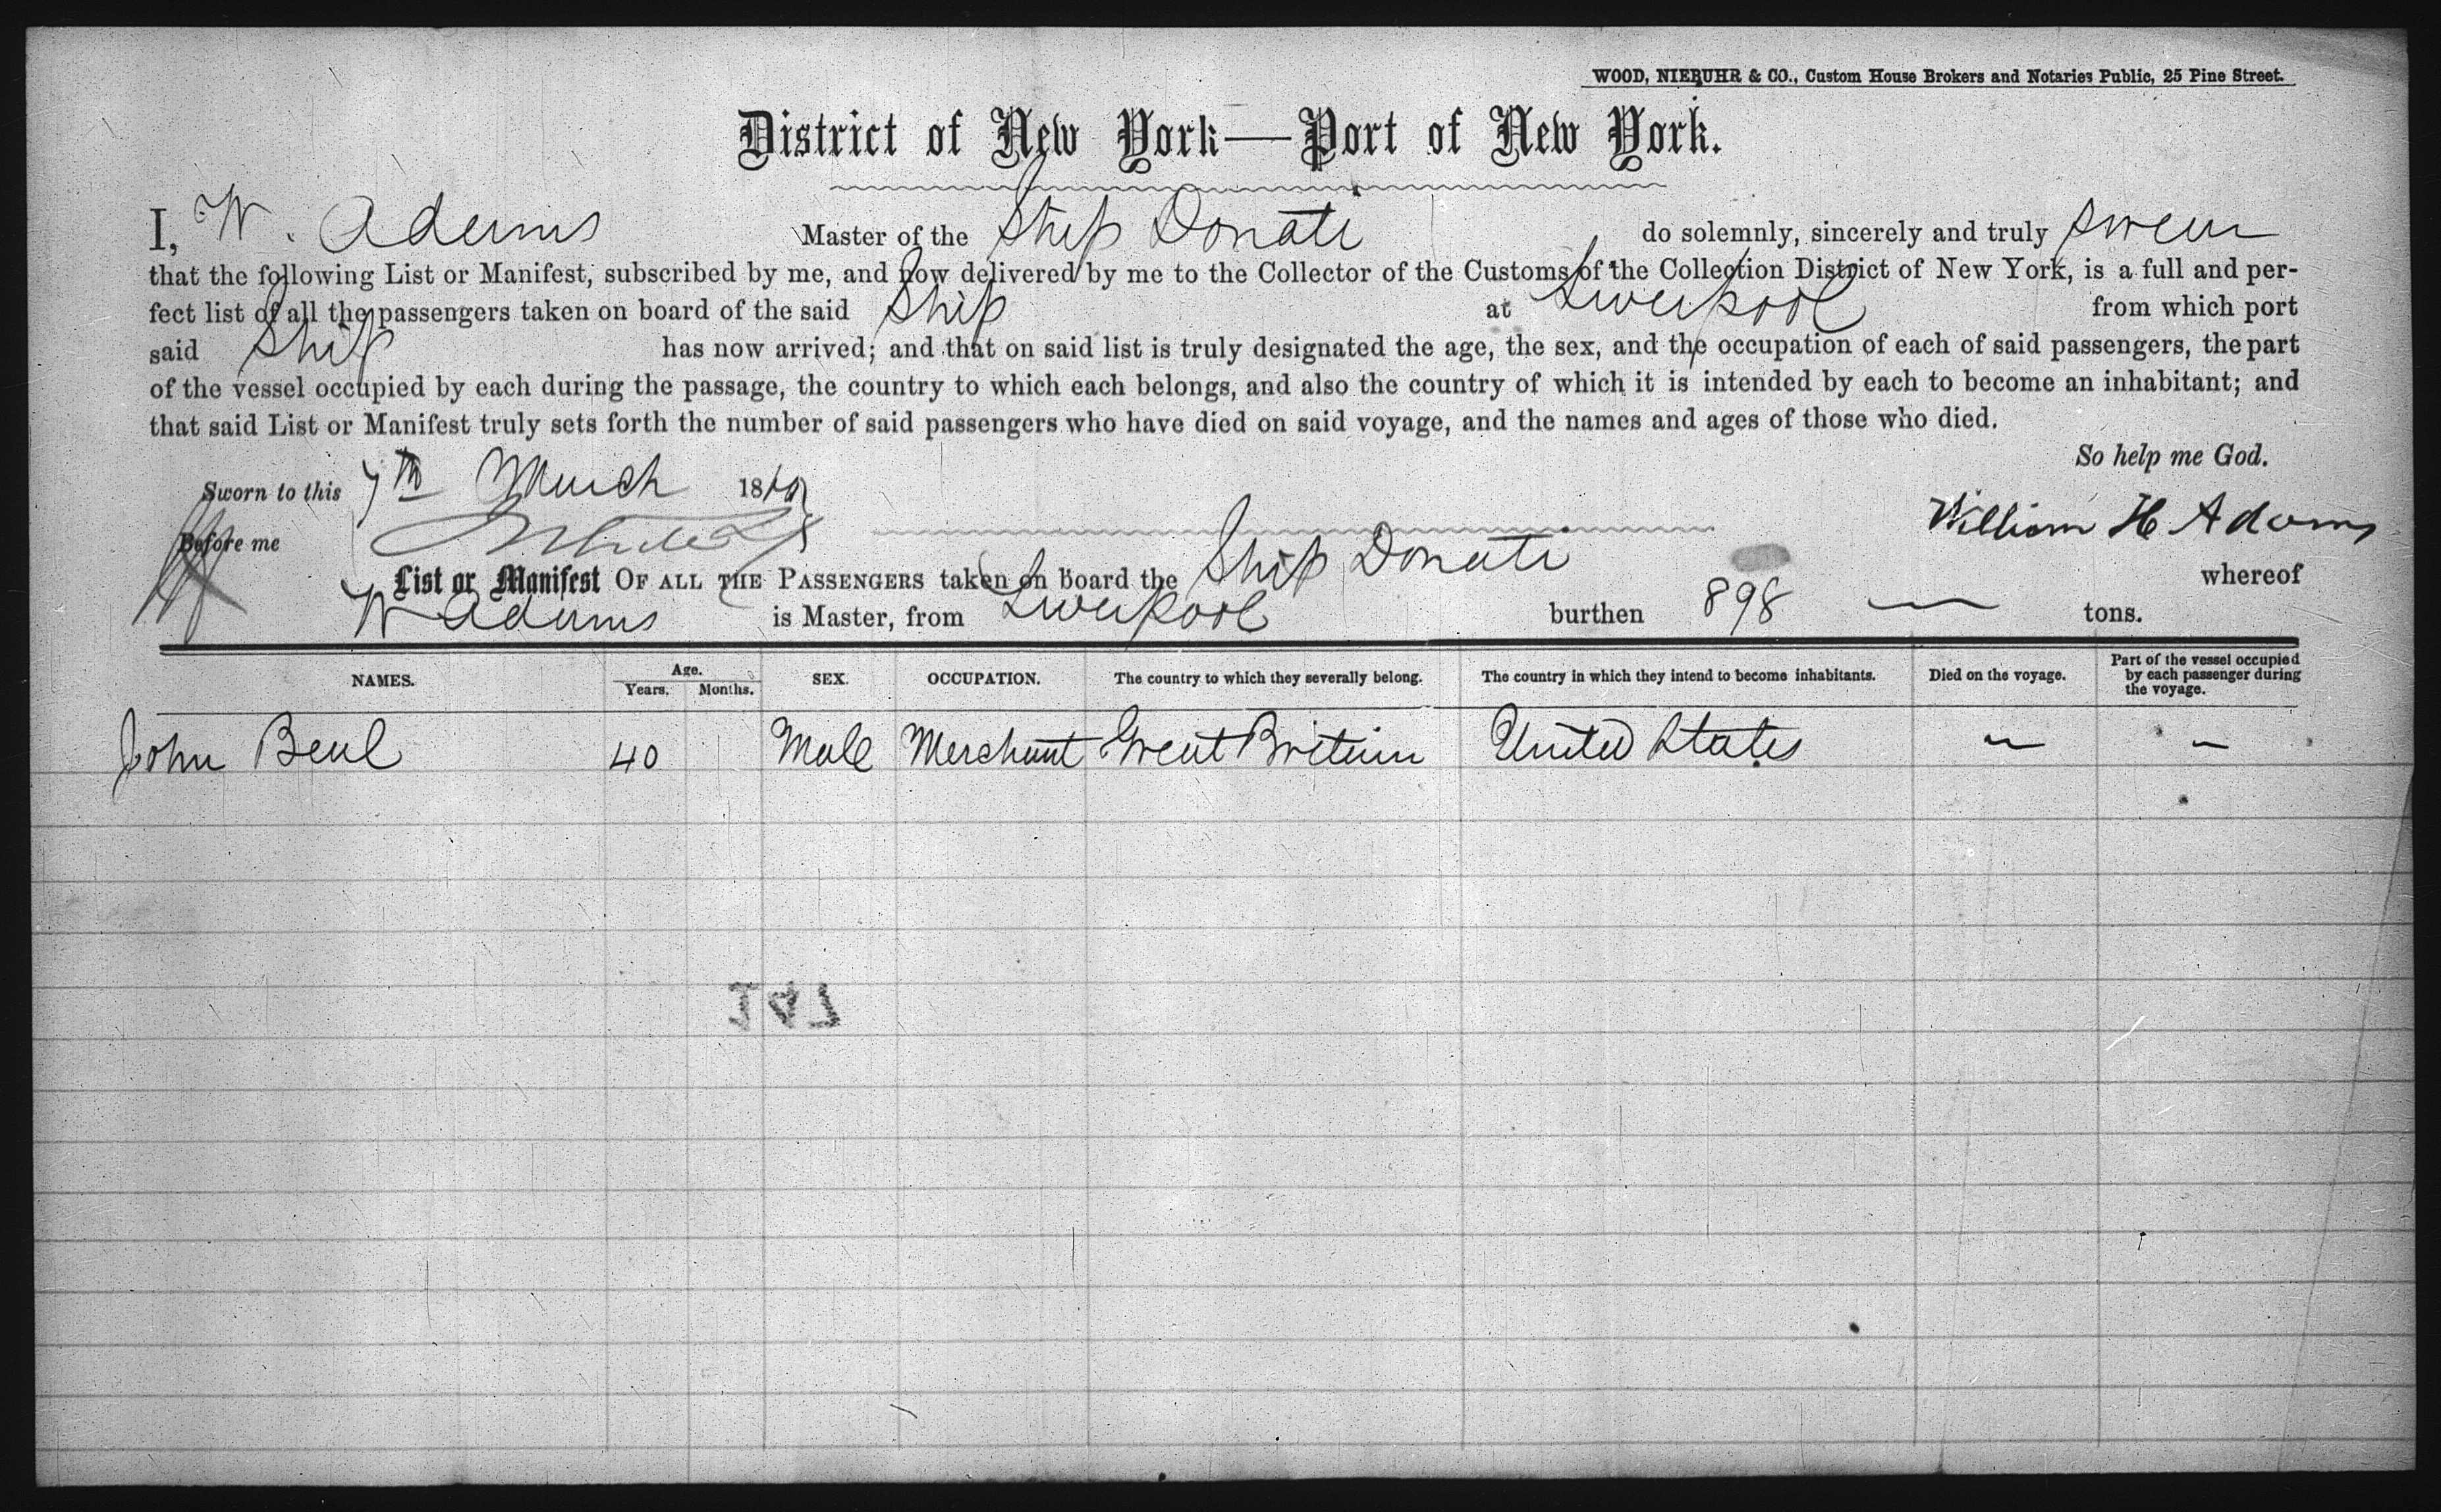 WOOD, NIEBUHR & CO., Custom House Brokers and Notaries Public, 25 Pine Street.
District of New York—Port of New York.
I, W. Adams Master of the Ship Donati do solemnly, sincerely and truly swear
that the following List or Manifest, subscribed by me, and now delivered by me to the Collector of the Customs of the Collection District of New York, is a full and per-
fect list of all the passengers taken on board of the said Ship at Liverpool from which port
said Ship has now arrived; and that on said list is truly designated the age, the sex, and the occupation of each of said passengers, the part
of the vessel occupied by each during the passage, the country to which each belongs, and also the country of which it is intended by each to become an inhabitant; and
that said List or Manifest truly sets forth the number of said passengers who have died on said voyage, and the names and ages of those who died.
So help me God.
Sworn to this 7th March 18
William H Adams
Before me
List or Manifest OF ALL THE PASSENGERS taken on board the Ship Donati whereof
W Adams is Master, from Liverpool burthen 898 — tons.
NAMES. Age. Years. Months. SEX. OCCUPATION. The country to which they severally belong. The country in which they intend to become inhabitants. Died on the voyage. Part of the vessel occupied by each passenger during the voyage.
John Beal 40 Male Merchant Great Britain United States — —